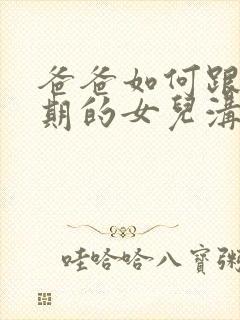 爸爸如何跟
期的女兒溝
哇哈哈八寶粥